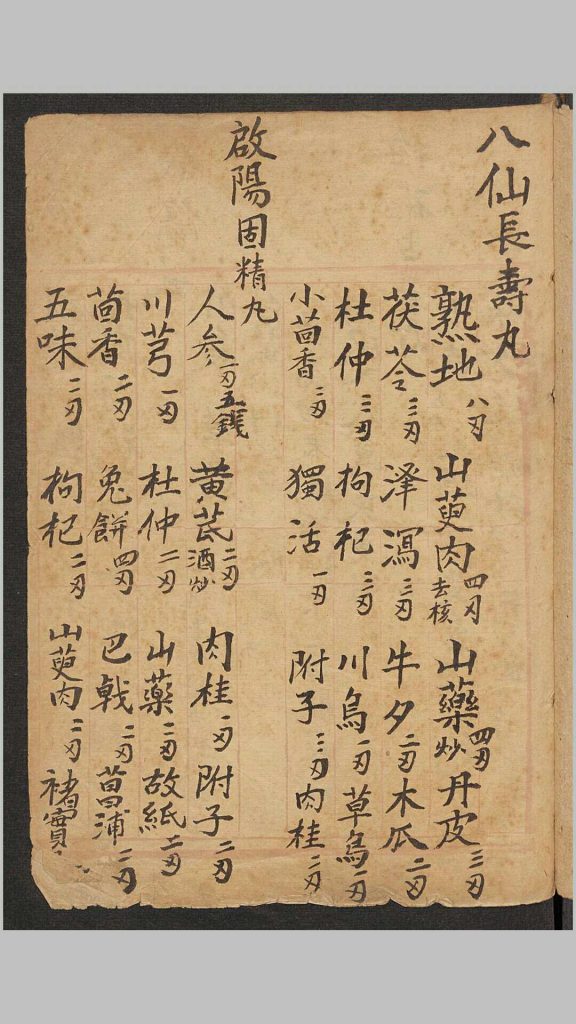 八仙長壽丸
熟地八刄 山萸肉四刄去核 山藥炒四刄 丹皮三刄
茯苓三刄 澤瀉三刄 牛夕二刄 木瓜二刄
杜仲三刄 枸杞三刄 川烏一刄 草烏一刄
小茴香二刄 獨活一刄 附子三刄 肉桂二刄
啟陽固精丸
人参一刄五錢 黃芪酒炒二刄 肉桂一刄 附子二刄
川芎一刄 杜仲二刄 山藥二刄 故紙二刄
茴香二刄 兔餅四刄 巴戟二刄 菖浦二刄
五味二刄 枸杞二刄 山萸肉二刄 褚實